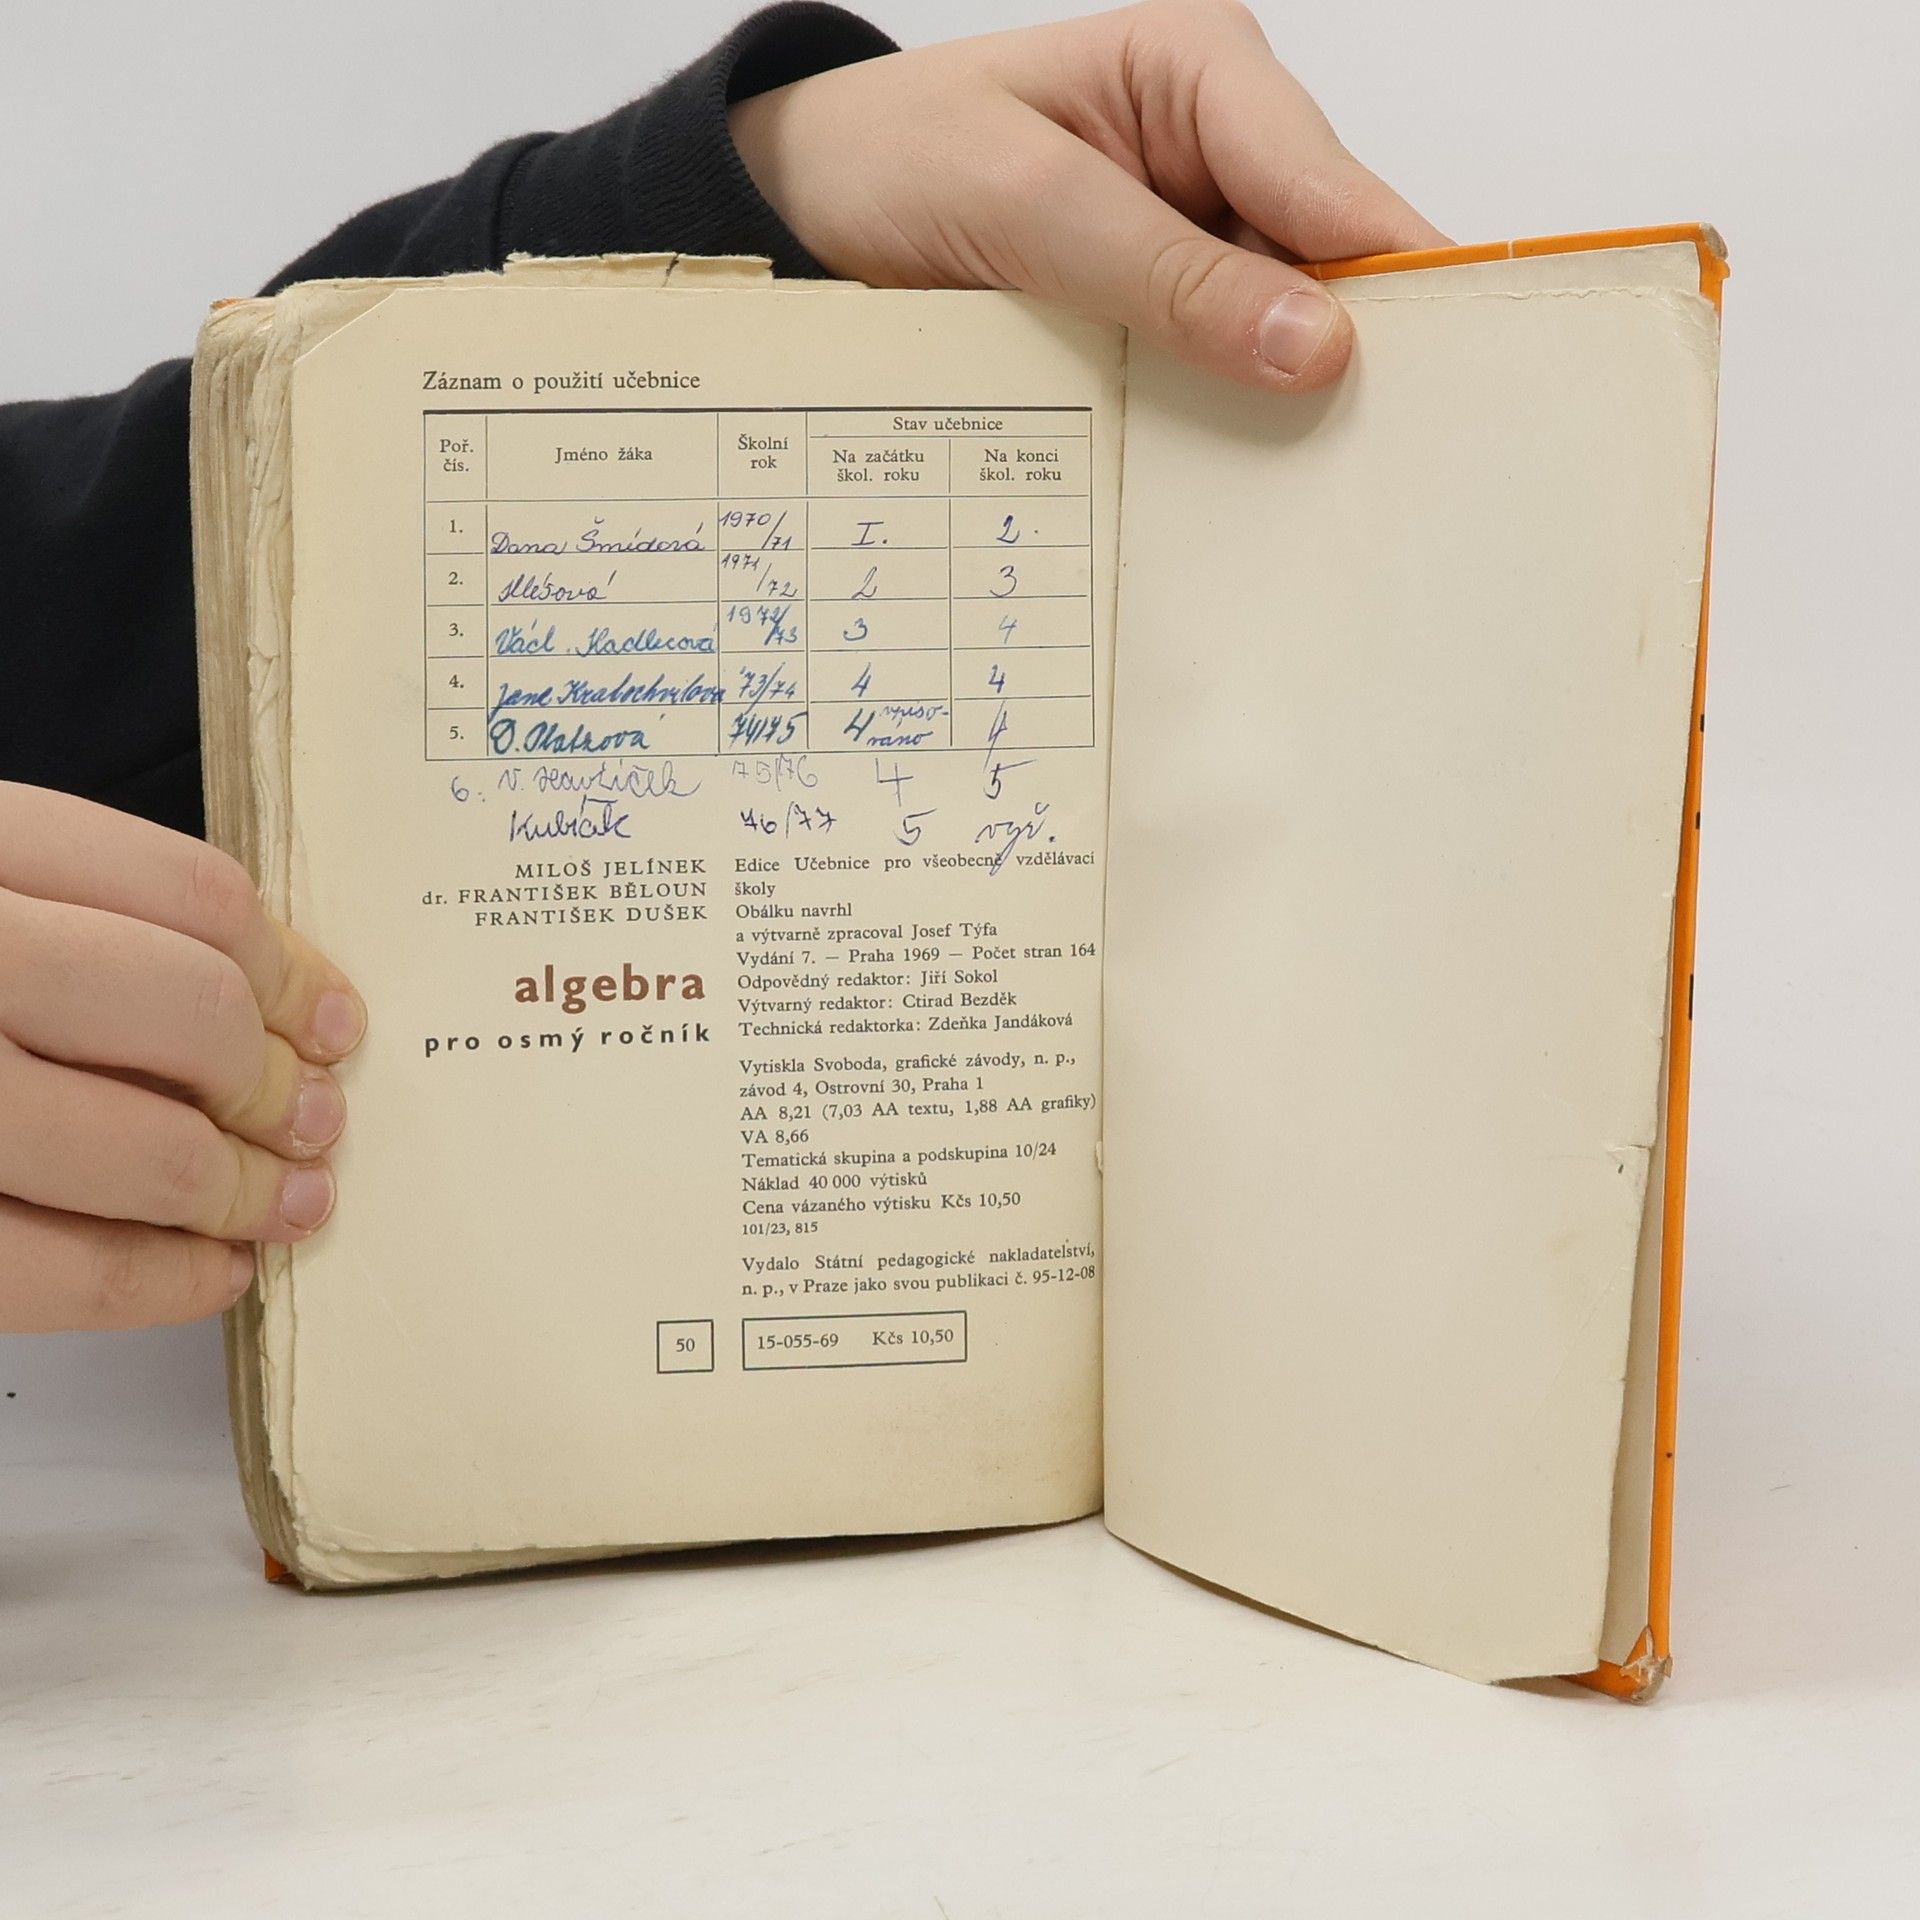 Záznam o použití učebnice
Poř. čís. Jméno žáka Školní rok Stav učebnice
Na začátku škol. roku Na konci škol. roku
1. Dana Šmídová 1970/71 I. 2.
2. 1971/72 2 3
3. Václ. Kadlecová 1972/73 3 4
4. Jana Kratochvílová '73/74 4 4
5. D. 74/75 4 4
6. V. Havlíček 75/76 4 5
Kubíček 76/77 5 vyř.
MILOŠ JELÍNEK
dr. FRANTIŠEK BĚLOUN
FRANTIŠEK DUŠEK
algebra
pro osmý ročník
Edice Učebnice pro všeobecně vzdělávací
školy
Obálku navrhl
a výtvarně zpracoval Josef Týfa
Vydání 7. — Praha 1969 — Počet stran 164
Odpovědný redaktor: Jiří Sokol
Výtvarný redaktor: Ctirad Bezděk
Technická redaktorka: Zdeňka Jandáková
Vytiskla Svoboda, grafické závody, n. p.,
závod 4, Ostrovní 30, Praha 1
AA 8,21 (7,03 AA textu, 1,88 AA grafiky)
VA 8,66
Tematická skupina a podskupina 10/24
Náklad 40 000 výtisků
Cena vázaného výtisku Kčs 10,50
101/23, 815
Vydalo Státní pedagogické nakladatelství,
n. p., v Praze jako svou publikaci č. 95-12-08
50 15-055-69 Kčs 10,50